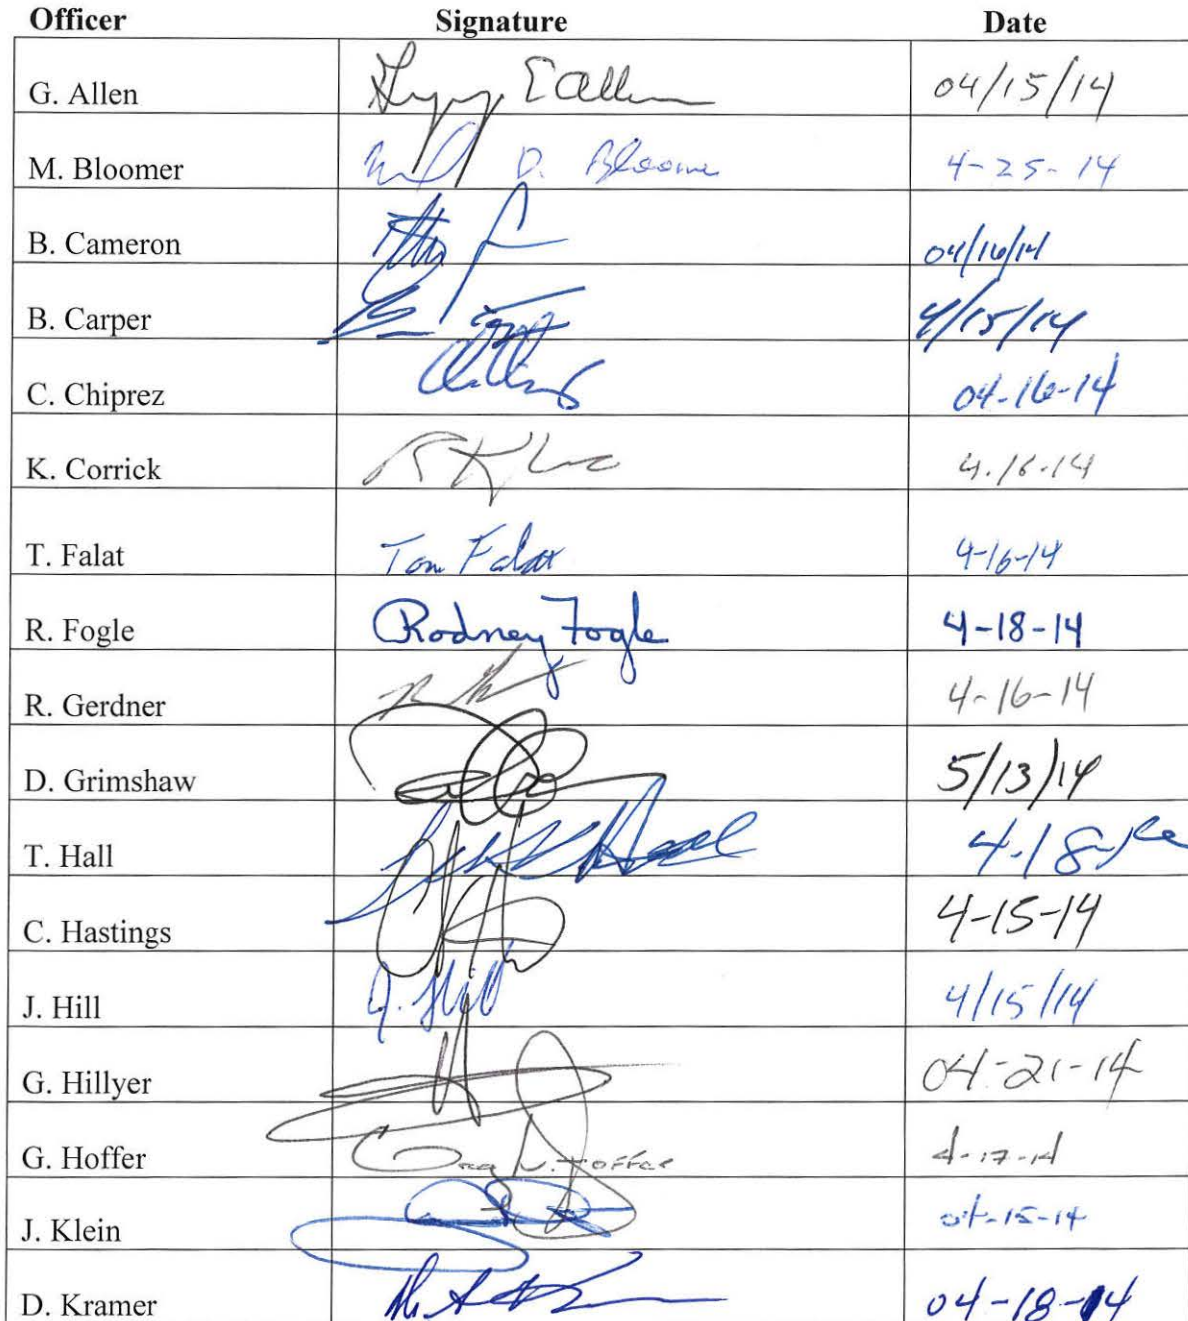 Officer Signature Date
G. Allen E Allen 04/15/14
M. Bloomer D. Bloomer 4-25-14
B. Cameron 04/16/14
B. Carper 4/15/14
C. Chiprez 04-16-14
K. Corrick 4.16.14
T. Falat Tom Falat 4-16-14
R. Fogle Rodney Fogle 4-18-14
R. Gerdner 4-16-14
D. Grimshaw 5/13/14
T. Hall Hall 4-18-
C. Hastings 4-15-14
J. Hill J. Hill 4/15/14
G. Hillyer 04-21-14
G. Hoffer Hoffer 4-17-14
J. Klein 04-15-14
D. Kramer 04-18-14